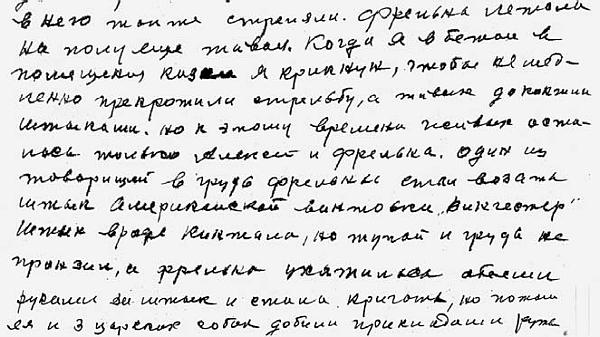 в него тоже стреляли. Фрельна лежала
на полу еще живая. Когда я вбежал в
помещения казни я крикнул, чтобы немед-
ленно прекратили стрельбу, а живых докончили
штыками. но к этому времени живых оста-
лось только Алексей и фрельна. один из
товарищей в грудь фрельны стал вонзать
штык американской винтовки "Винчестер"
Штык вроде кинжала, но тупой и грудь не
пронзил, а фрельна ухватилась обеими
руками за штык и стала кричать, но потом
ее и 3 царских собак добили прикладами ружья